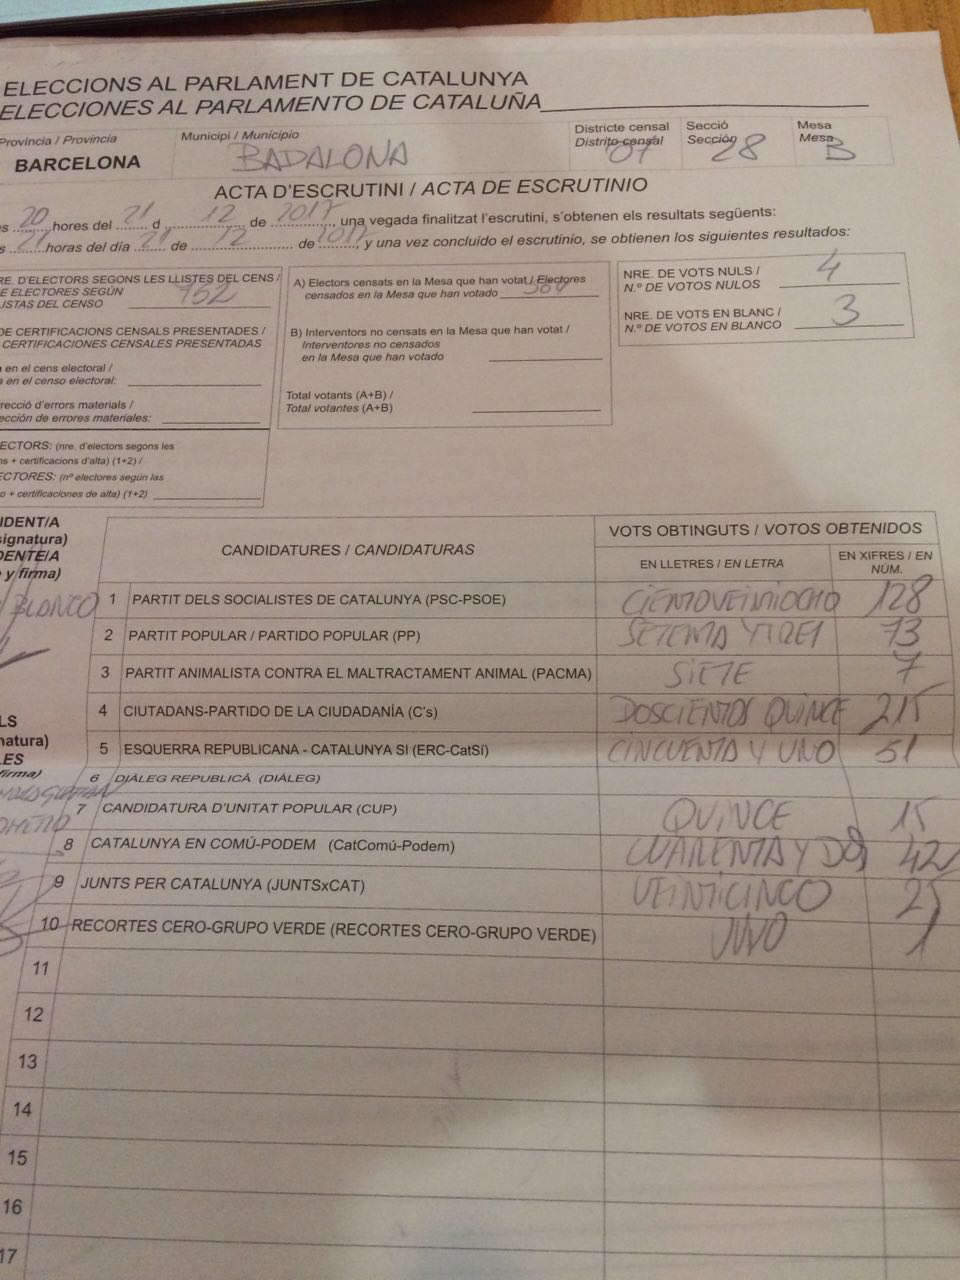 ELECCIONS AL PARLAMENT DE CATALUNYA
ELECCIONES AL PARLAMENTO DE CATALUÑA
Província / Provincia
BARCELONA
Municipi / Municipio
BADALONA
Districte censal
Distrito censal
07
Secció
Sección
28
Mesa
Mesa
B
ACTA D'ESCRUTINI / ACTA DE ESCRUTINIO
20 hores del 21 d 12 de 2017, una vegada finalitzat l'escrutini, s'obtenen els resultats següents:
horas del día 21 de 12 de 2017, y una vez concluido el escrutinio, se obtienen los siguientes resultados:
RE. D'ELECTORS SEGONS LES LLISTES DEL CENS /
E ELECTORES SEGÚN
LISTAS DEL CENSO 752
DE CERTIFICACIONS CENSALS PRESENTADES /
CERTIFICACIONES CENSALES PRESENTADAS
a en el cens electoral /
a en el censo electoral:
rrecció d'errors materials /
ección de errores materiales:
ECTORS: (nre. d'electors segons les
ns + certificacions d'alta) (1+2) /
ECTORES: (nº electores según las
o + certificaciones de alta) (1+2)
A) Electors censats en la Mesa que han votat / Electores
censados en la Mesa que han votado
B) Interventors no censats en la Mesa que han votat /
Interventores no censados
en la Mesa que han votado
Total votants (A+B) /
Total votantes (A+B)
NRE. DE VOTS NULS /
N.º DE VOTOS NULOS 4
NRE. DE VOTS EN BLANC /
N.º DE VOTOS EN BLANCO 3
IDENT/A
signatura)
DENTE/A
y firma)
BLANCO
LS
natura)
LES
firma)
CANDIDATURES / CANDIDATURAS
VOTS OBTINGUTS / VOTOS OBTENIDOS
EN LLETRES / EN LETRA
EN XIFRES / EN
NÚM.
1 PARTIT DELS SOCIALISTES DE CATALUNYA (PSC-PSOE) CIENTOVEINTIOCHO 128
2 PARTIT POPULAR / PARTIDO POPULAR (PP) SETENTA Y TRES 73
3 PARTIT ANIMALISTA CONTRA EL MALTRACTAMENT ANIMAL (PACMA) SIETE 7
4 CIUTADANS-PARTIDO DE LA CIUDADANÍA (C's) DOSCIENTOS QUINCE 215
5 ESQUERRA REPUBLICANA - CATALUNYA SI (ERC-CatSí) CINCUENTA Y UNO 51
6 DIÀLEG REPUBLICÀ (DIÀLEG)
7 CANDIDATURA D'UNITAT POPULAR (CUP) QUINCE 15
8 CATALUNYA EN COMÚ-PODEM (CatComú-Podem) CUARENTA Y DOS 42
9 JUNTS PER CATALUNYA (JUNTSxCAT) VEINTICINCO 25
10 RECORTES CERO-GRUPO VERDE (RECORTES CERO-GRUPO VERDE) UNO 1
11
12
13
14
15
16
17